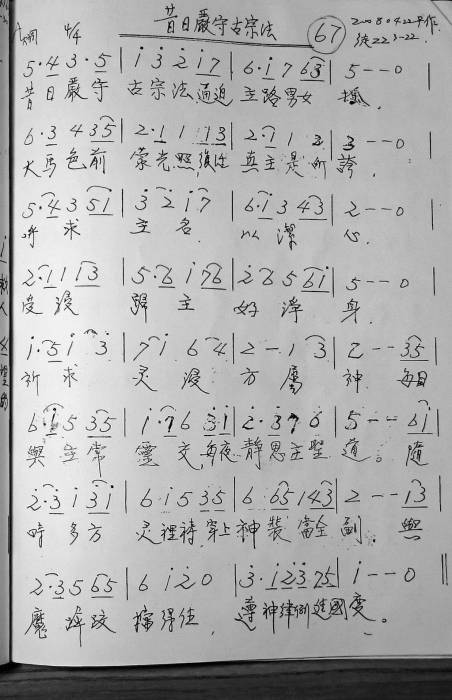 昔日嚴守古宗法 67
4/4
5·4 3·5 | 1 3 2 1 7 | 6·1 7 6 3 | 5 - - 0 |
昔日嚴守 古宗法逼迫 主路男女
6·3 4 3 5 | 2·1 1 1 3 | 2·7 1 2 | 3 - - 0
大馬色前 蒙光照 真主是所誇
5·4 3 5 1 | 3 2 1 7 | 6·1 3 4 3 | 2 - - 0
所求 主名 以潔 心
2·1 1 1 3 | 5·6 1 7 6 | 2 6 5 6 1 | 5 - - 0
受浸 歸主 好淨 身
1·5 1 3 | 7 1 6 4 | 2 - 1 3 | 2 - - 3 5
祈求 灵浸 方屬 神 每日
6·1 5 3 5 | 1·7 6 3 1 | 2·3 7 6 | 5 - - 6 1
與主常 靈交,每夜靜思主聖道。隨
2·3 1 3 1 | 6·1 5 3 5 | 6 6 5 1 4 3 | 2 - - 1 3
時多方 灵裡禱 穿上神裝當全副.與
2·3 5 6 5 | 6 1 2 0 | 3·1 2 3 7 5 | 1 - - 0 ‖
魔 得住 遵神律例進國度。